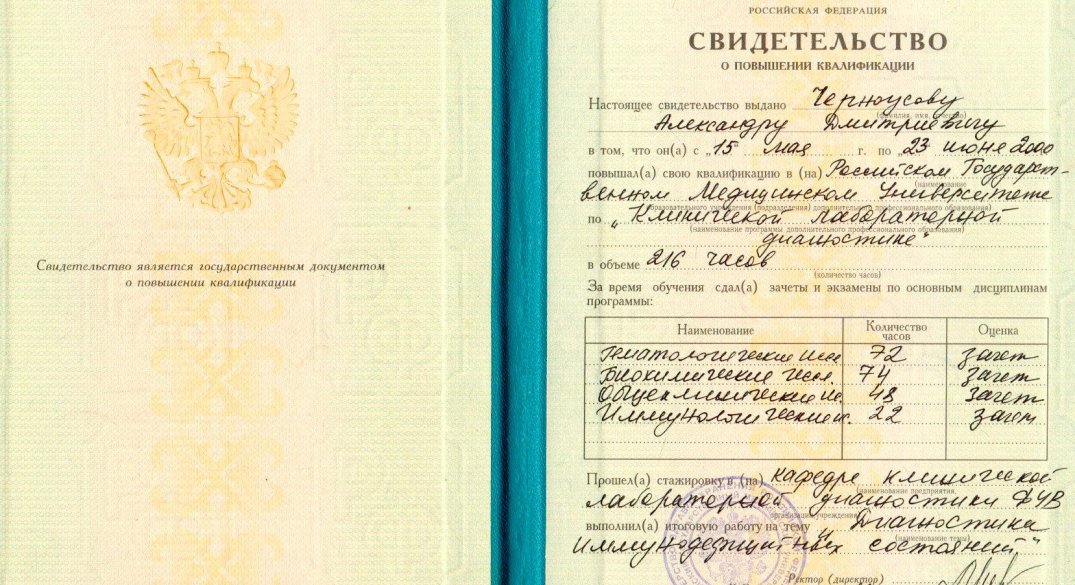 Свидетельство является государственным документом
о повышении квалификации
РОССИЙСКАЯ ФЕДЕРАЦИЯ
СВИДЕТЕЛЬСТВО
О ПОВЫШЕНИИ КВАЛИФИКАЦИИ
Настоящее свидетельство выдано Черноусову
(фамилия, имя, отчество)
Александру Дмитриевичу
в том, что он(а) с „15" мая г. по „23 июня 2000
повышал(а) свою квалификацию в (на) Российском Государст-
(наименование
венном Медицинском Университете
образовательного учреждения (подразделения) дополнительного профессионального образования)
по „Клинической лабораторной
(наименование программы дополнительного профессионального образования)
диагностике"
в объеме 216 часов
(количество часов)
За время обучения сдал(а) зачеты и экзамены по основным дисциплинам
программы:
Наименование Количество часов Оценка
Гематологические иссл 72 зачет
Биохимические иссл. 74 зачет
Общеклинические ис. 48 зачет
Иммунологические и. 22 зачет
Прошел(а) стажировку в (на) кафедре клинической
(наименование предприятия,
лабораторной диагностики ФУВ
организации, учреждения)
выполнил(а) итоговую работу на тему „Диагностика
(наименование темы)
иммунодефицитных состояний."
Ректор (директор)